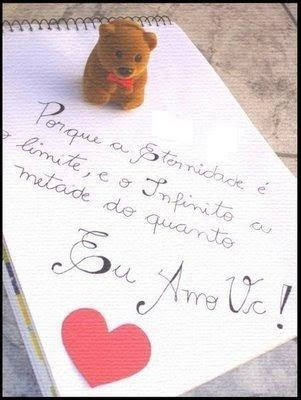 Porque a Eternidade é
o limite, e o Infinito a
metade do quanto
Eu Amo Vc!